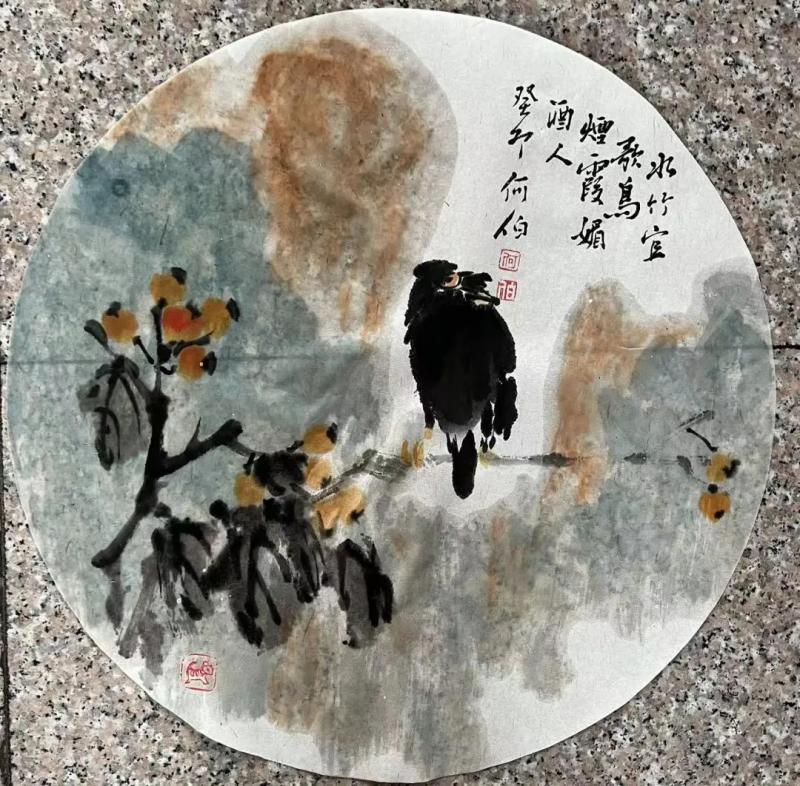 水竹宜
歌鳥
煙霞媚
酒人
癸卯何伯
何
伯